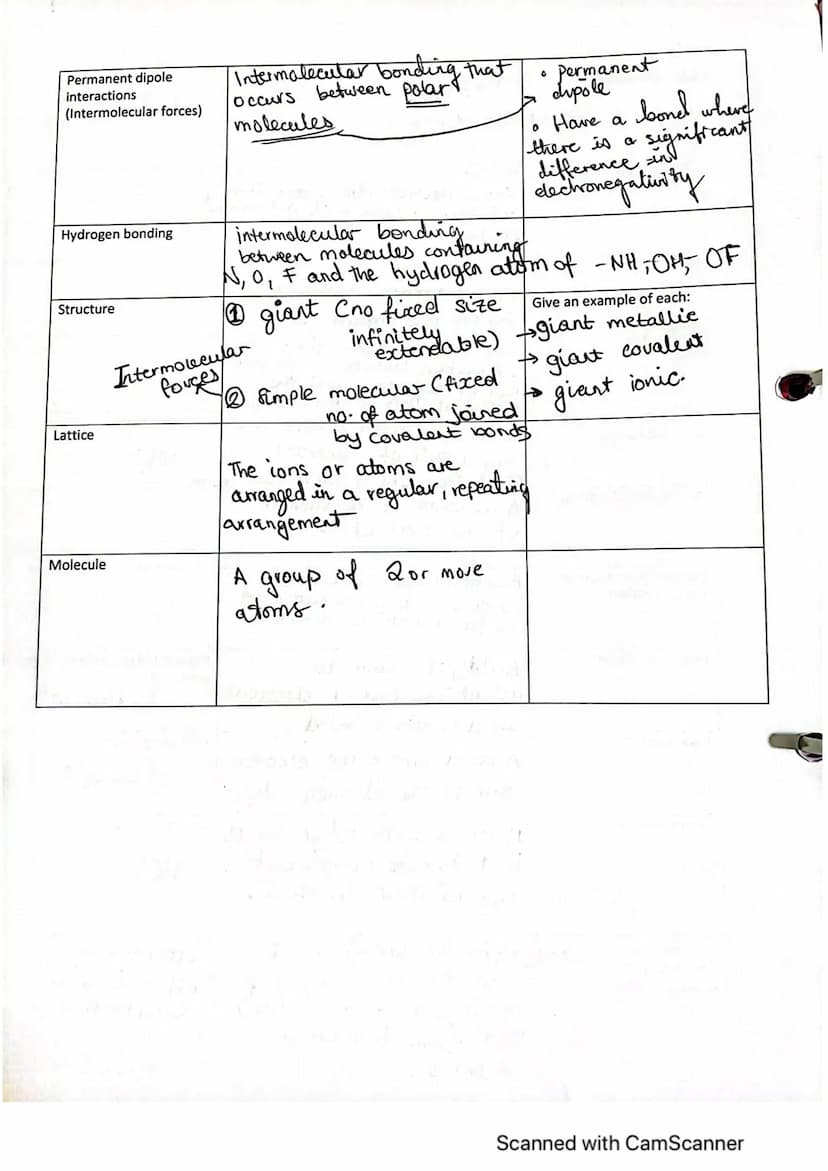 Permanent dipole
interactions
(Intermolecular forces)
Intermolecular bonding that
occurs between polar
molecules
• permanent
dipole
• Have a bond where
there is a significant
difference in
electronegativity
Hydrogen bonding
intermolecular bonding
between molecules containing
N, O, F and the hydrogen atom of -NH, -OH, OF
Structure
① giant (no fixed size
infinitely
extendable)
Intermolecular
forces
② simple molecular (fixed
no. of atom joined
by covalent bonds
Give an example of each:
→ giant metallic
→ giant covalent
→ giant ionic.
Lattice
The ions or atoms are
arranged in a regular, repeating
arrangement
Molecule
A group of 2 or more
atoms.
Scanned with CamScanner